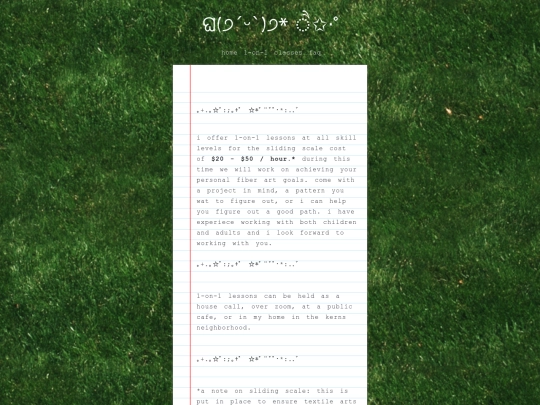 ଘ(੭ˊᵕˋ)੭* ੈ✩‧₊˚
home 1-on-1 classes faq
｡₊.｡☆ﾟ:;｡+ﾟ ☆*ﾟ¨ﾟﾟ･*:..ﾞ
i offer 1-on-1 lessons at all skill
levels for the sliding scale cost
of $20 - $50 / hour.* during this
time we will work on achieving your
personal fiber art goals. come with
a project in mind, a pattern you
eat to figure out, or i can help
you figure out a good path. i have
experiece working with both children
and adults and i look forward to
working with you.
｡₊.｡☆ﾟ:;｡+ﾟ ☆*ﾟ¨ﾟﾟ･*:..ﾞ
1-on-1 lessons can be held as a
house call, over zoom, at a public
cafe, or in my home in the kerns
neighborhood.
｡₊.｡☆ﾟ:;｡+ﾟ ☆*ﾟ¨ﾟﾟ･*:..ﾞ
*a note on sliding scale: this is
put in place to ensure textile arts